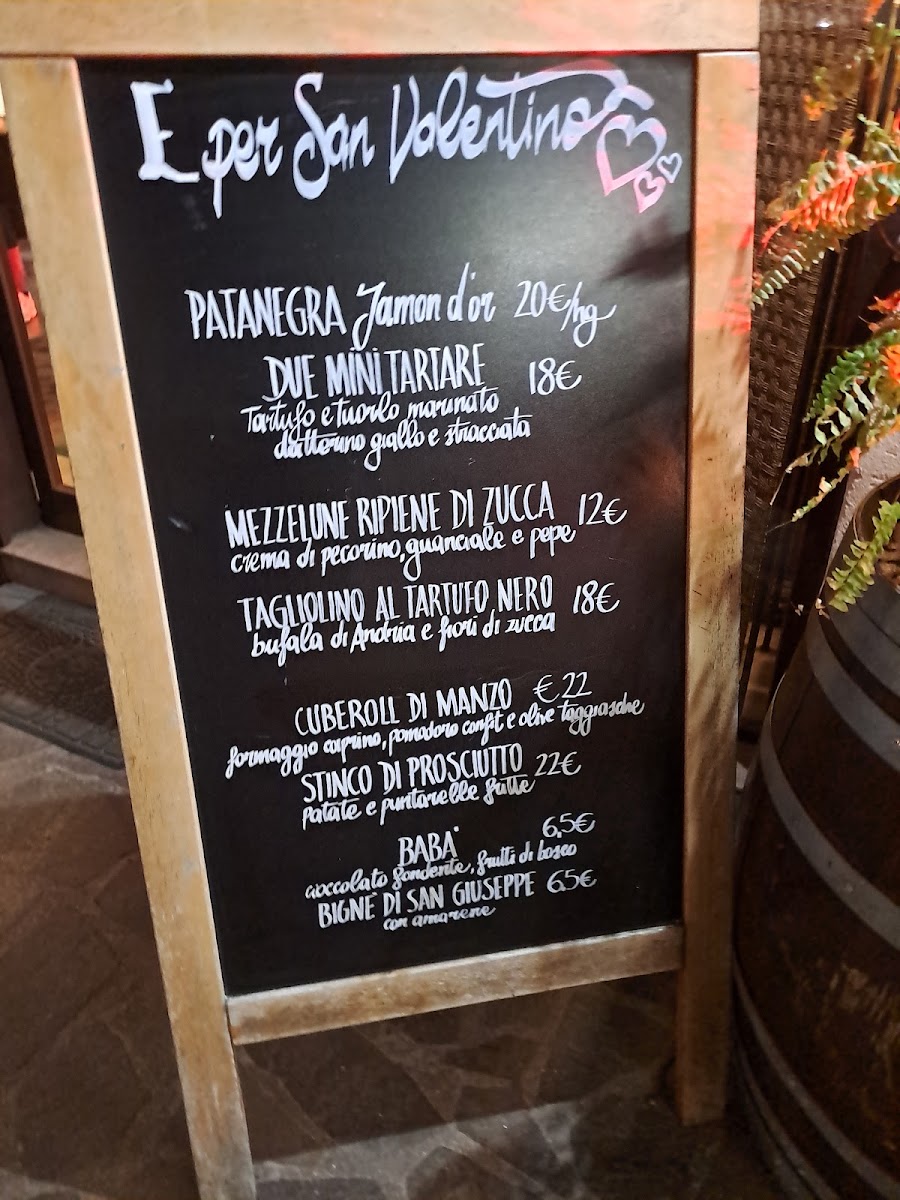 E per San Valentino
PATANEGRA Jamon d'or 20€/hg
DUE MINI TARTARE 18€
Tartufo e tuorlo marinato
datterino giallo e stracciata
MEZZELUNE RIPIENE DI ZUCCA 12€
crema di pecorino, guanciale e pepe
TAGLIOLINO AL TARTUFO NERO 18€
bufala di Andria e fiori di zucca
CUBEROLL DI MANZO €22
formaggio caprino, pomodoro confit e olive taggiasche
STINCO DI PROSCIUTTO 22€
Patate e puntarelle fritte
BABA' 6,5€
cioccolato fondente, frutti di bosco
BIGNE' DI SAN GIUSEPPE 6,5€
con amarene